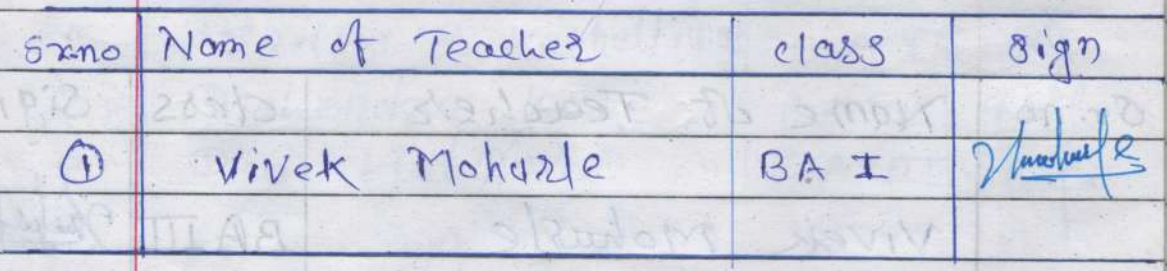 Sr.no Name of Teacher class sign
① Vivek Moharle BA I